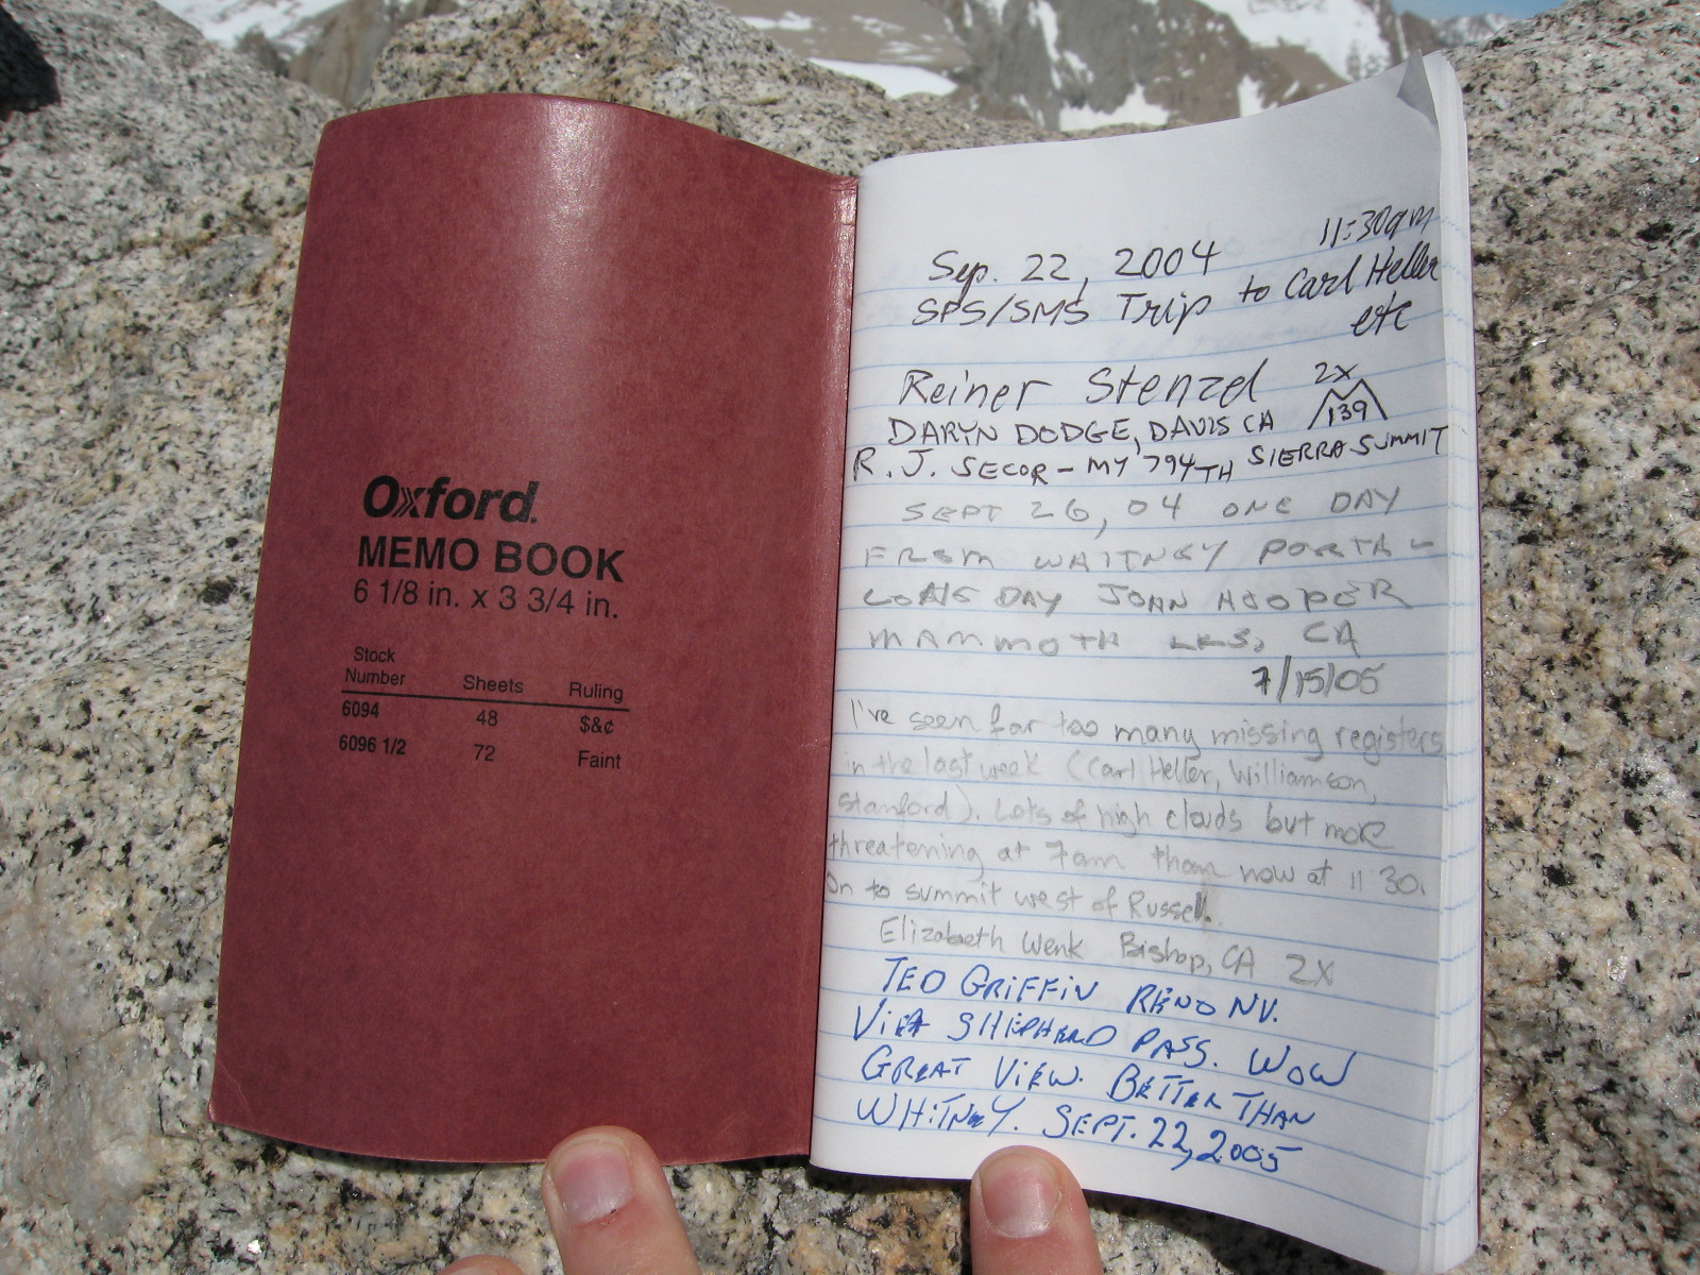 Oxford
MEMO BOOK
6 1/8 in. x 3 3/4 in.
Stock
Number Sheets Ruling
6094 48 $&¢
6096 1/2 72 Faint
11:30am
Sep. 22, 2004
SPS/SMS Trip to Carl Heller
etc
Reiner Stenzel 2x
139
DARYN DODGE, DAVIS CA
R. J. SECOR - MY 794TH SIERRA SUMMIT
SEPT 26, 04 ONE DAY
FROM WHITNEY PORTAL
LONG DAY JOHN HOOPER
MAMMOTH LKS, CA
7/15/05
I've seen far too many missing registers
in the last week (Carl Heller, Williamson,
Stanford). Lots of high clouds but more
threatening at 7am than now at 11 30.
On to summit west of Russell.
Elizabeth Wenk Bishop, CA 2X
TED GRIFFIN RENO NV.
VIA SHEPHERD PASS. WOW
GREAT VIEW. BETTER THAN
WHITNEY. SEPT. 22, 2005